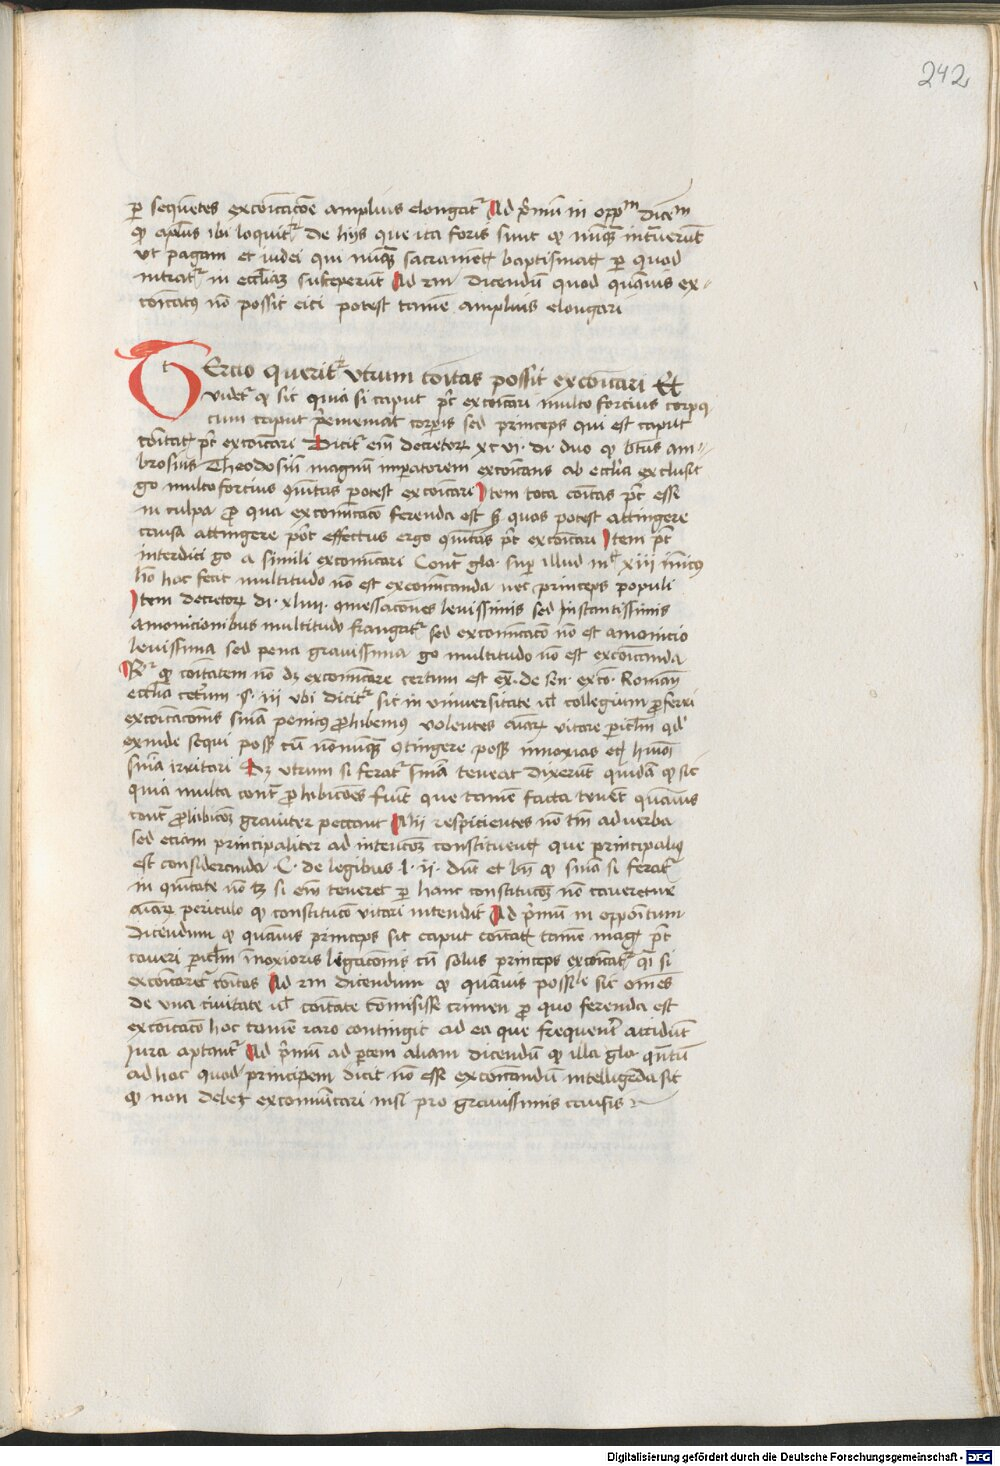 242
per sequētes excōicacōe amplius elongatʳ Ad p̄mū in oppᵐ dicēᵐ
qꝫ aplūs ibi loquitʳ de hijs que ita foris sunt qꝫ nūqᷓ intᵃuerūt
ut pagani et iudei qui nūqᷓ sacramētꝫ baptismatꝫ per quod
intratʳ in eccl̄iaꝫ susceperūt Ad 2m dicendū quod quāuis ex-
cōicatus nō possit eici potest tamē amplius elongari
TErcio queritʳ utrum cōitas possit excōicari Et
videtʳ qꝫ sic quia si caput pt̄ excōicari multo forcius corpꝰ
cum caput p̄emineat corporis sed princeps qui est caput
cōitatꝫ pt̄ excōicari Dicitʳ eīm decretorꝫ xcvi. di. duo qꝫ bt̄us am-
brosius Theodosiū magnū imperatorem excōicans ab eccl̄ia exclusit
go multo forcius cōitas potest excōicari Item tota cōitas pt̄ esse
in culpa pro qua excomūicacō ferenda est sꝫ quos potest attingere
causa attingere pōt effectus ergo cōitas pt̄ excōicari Item pt̄
interdici go a simili excomūicari Contᵃ glo. sup illud mᵗ xiii inimicꝰ
hō hoc fecit multitudo nō est excomūicanda nec princeps populi
Item decretorꝫ di. xliiii. cōmessacōnes leuissimis sed instantissimis
amonicionibus multitudo frangatʳ sed excomūicacō nō est amonicio
leuissima sed pena grauissima go multitudo nō est excōicanda
Rʳ qꝫ cōitatem nō dꝫ excomūicare certum est exᵃ. de sen. exco. Romanā
eccl̄ia ceterum §. iii ubi dicitʳ sic in vniuersitate uel collegium proferri
excōicacōnis sniāꝫ penitꝰ prohibemus volentes aīarꝫ vitare peric̄lm qd̄
exinde sequi possꝫ cū nōnūqᷓ cōtingere possꝫ innoxios etꝫ hꝰmōi
sniā irretiri Sꝫ utrum si feratʳ sniā teneat dixerūt quidā qꝫ sic
quia multa contᵃ prohibicōes fiūt que tamē facta tenēt quāuis
contᵃ prohibicōꝫ grauiter peccant Alij respicientes nō tm̄ ad verba
sed etiam principaliter ad intencōꝫ constituentꝫ que principalius
est consideranda C. de legibus l. ii. dn̄t et bn̄ qꝫ sniā si feratʳ
in cōitate nō tꝫ si eīm teneret per hanc constitucōꝫ nō caueretur
aīarꝫ periculo qꝫ constitucō vitari intendit Ad p̄mū in oppōitum
dicendum qꝫ quāuis princeps sit caput cōitatꝫ tamē magꝫ pt̄
caueri peric̄lm innoxioris ligacōnis cū solus princeps excōicatʳ qᷓ si
excōicaretʳ cōitas Ad 2m dicendum qꝫ quāuis possibile sit omēs
de vna ciuitate uel cōitate cōmisisse crimen pro quo ferenda est
excōicacō hoc tamen raro contingit ad ea que frequentʳ accidūt
iura aptantʳ Ad p̄mū ad partem aliam dicendū qꝫ illa glo. qᵃntū
ad hoc quod principem dicit nō esse excōicandū intelligēda sit
qꝫ non debet excomūicari nisi pro grauissimis causis
Digitalisierung gefördert durch die Deutsche Forschungsgemeinschaft - DFG